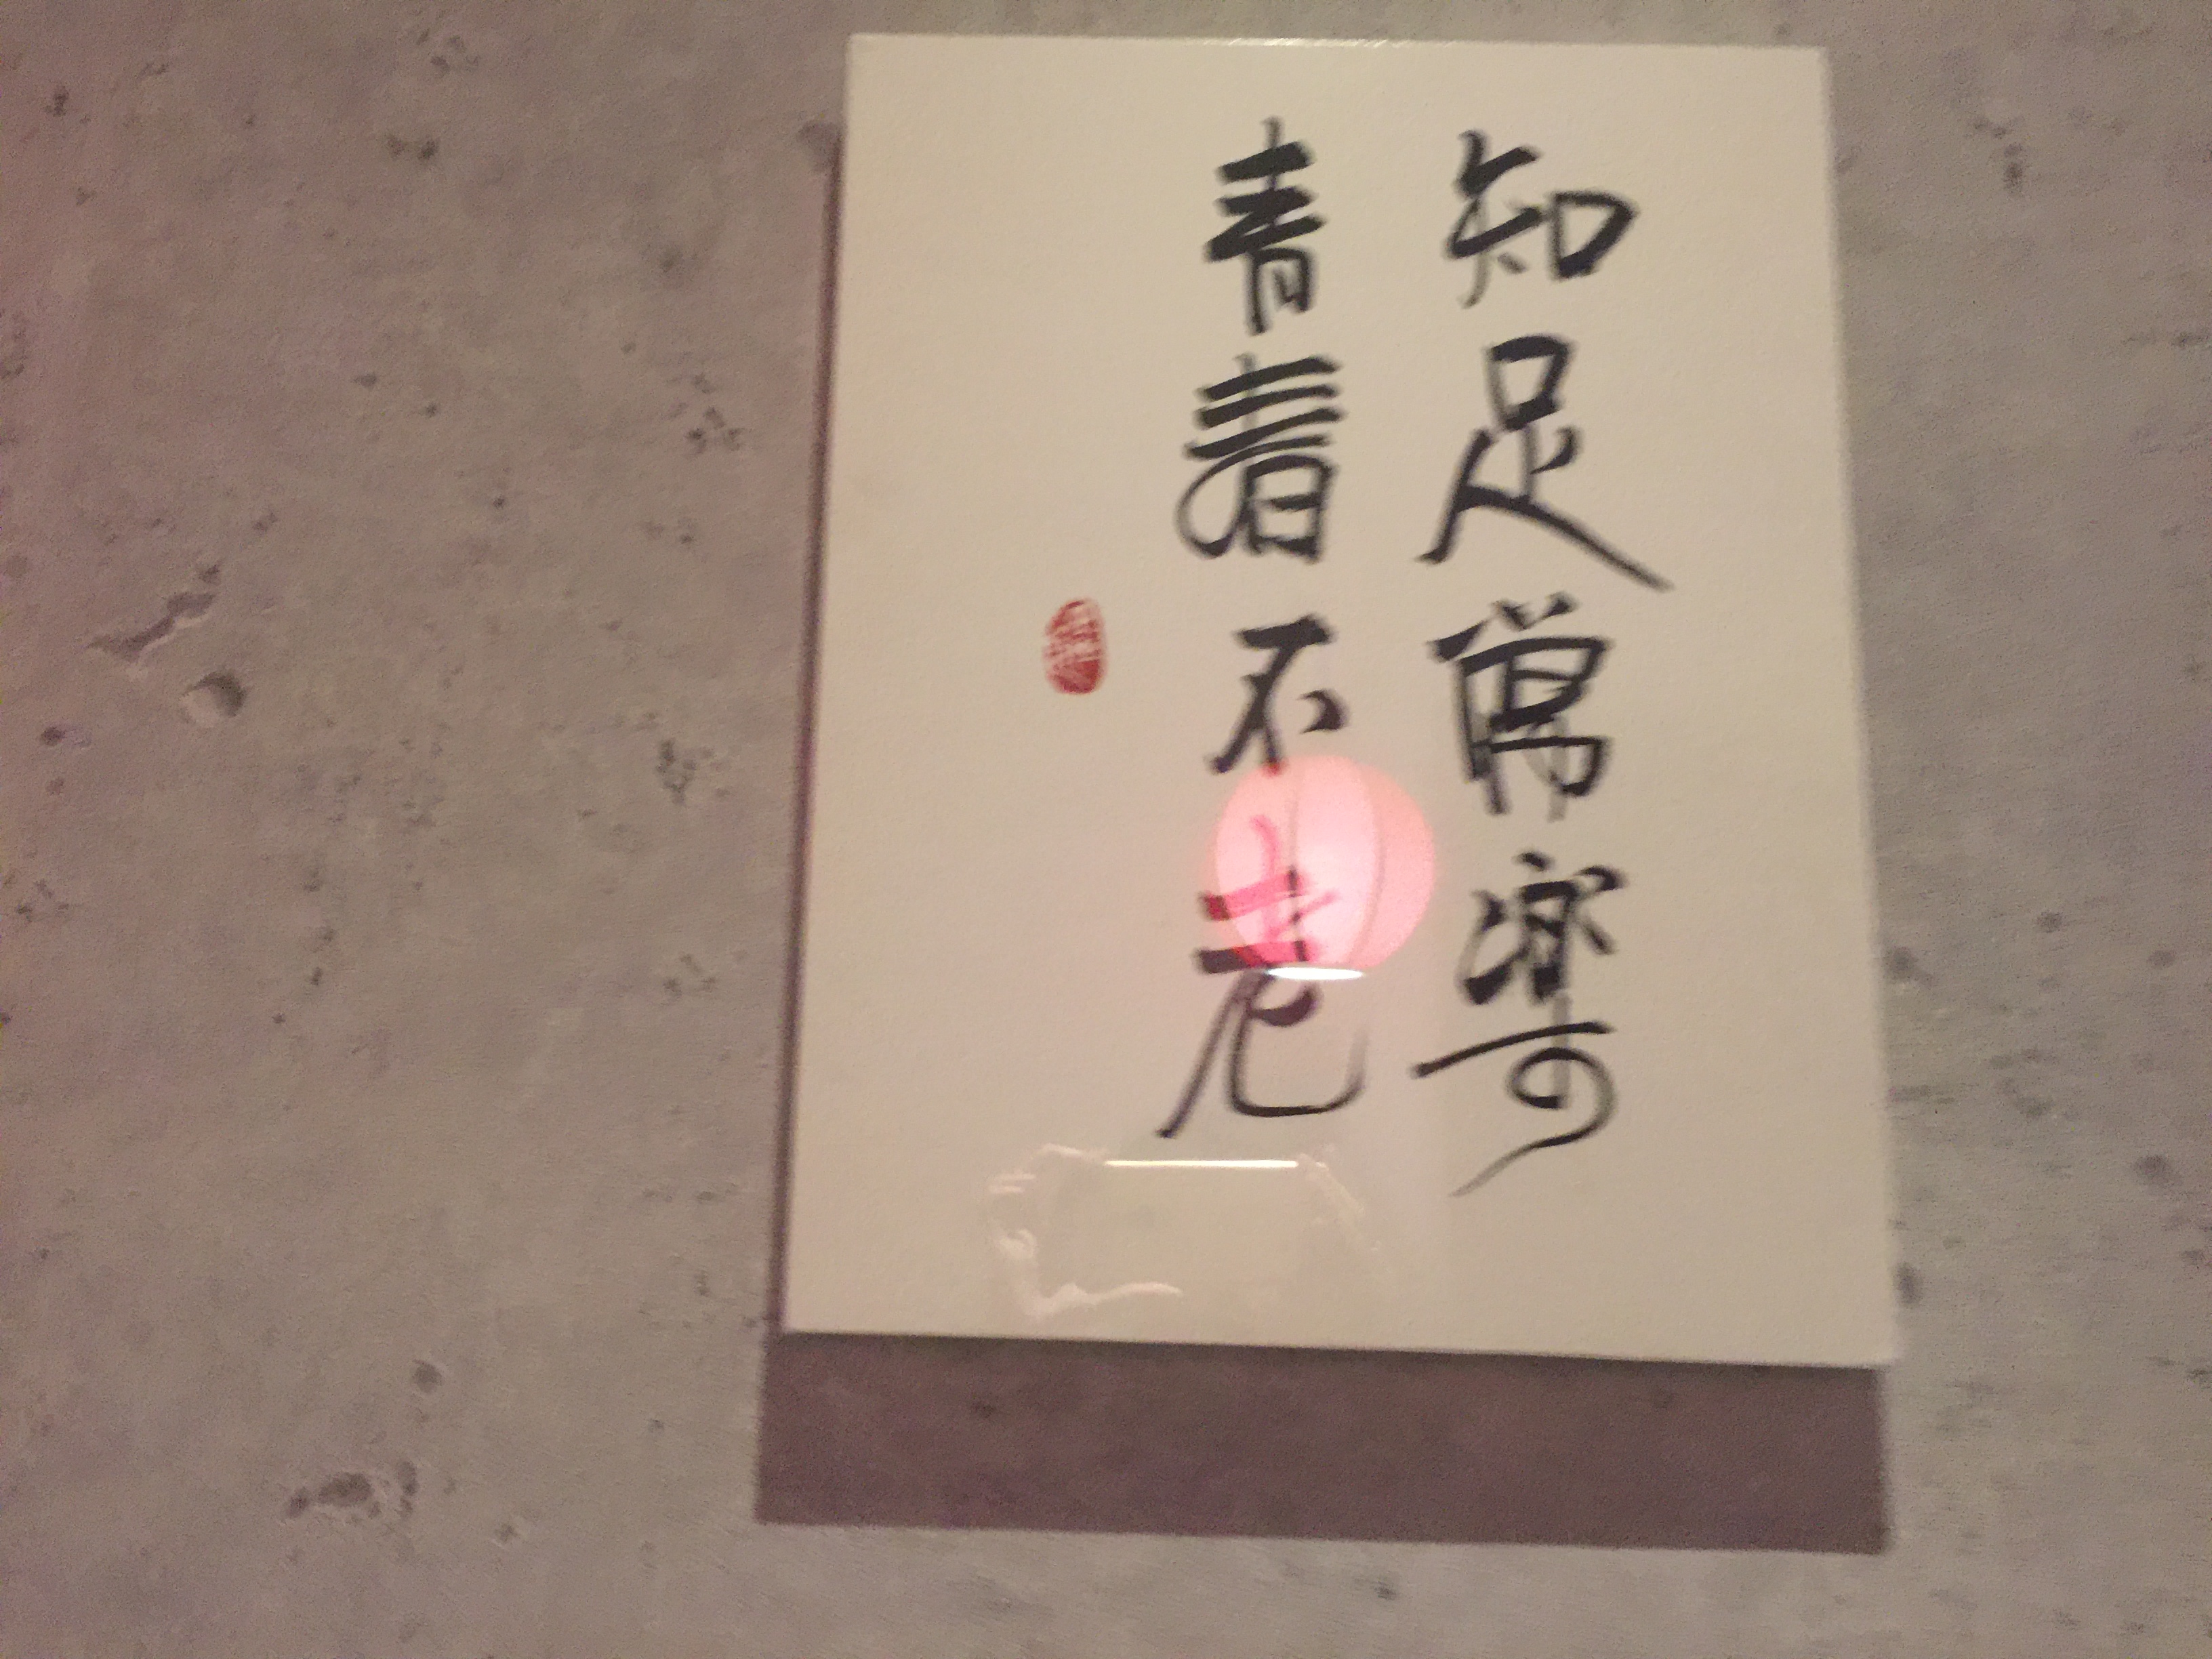 知足常樂
青春不老